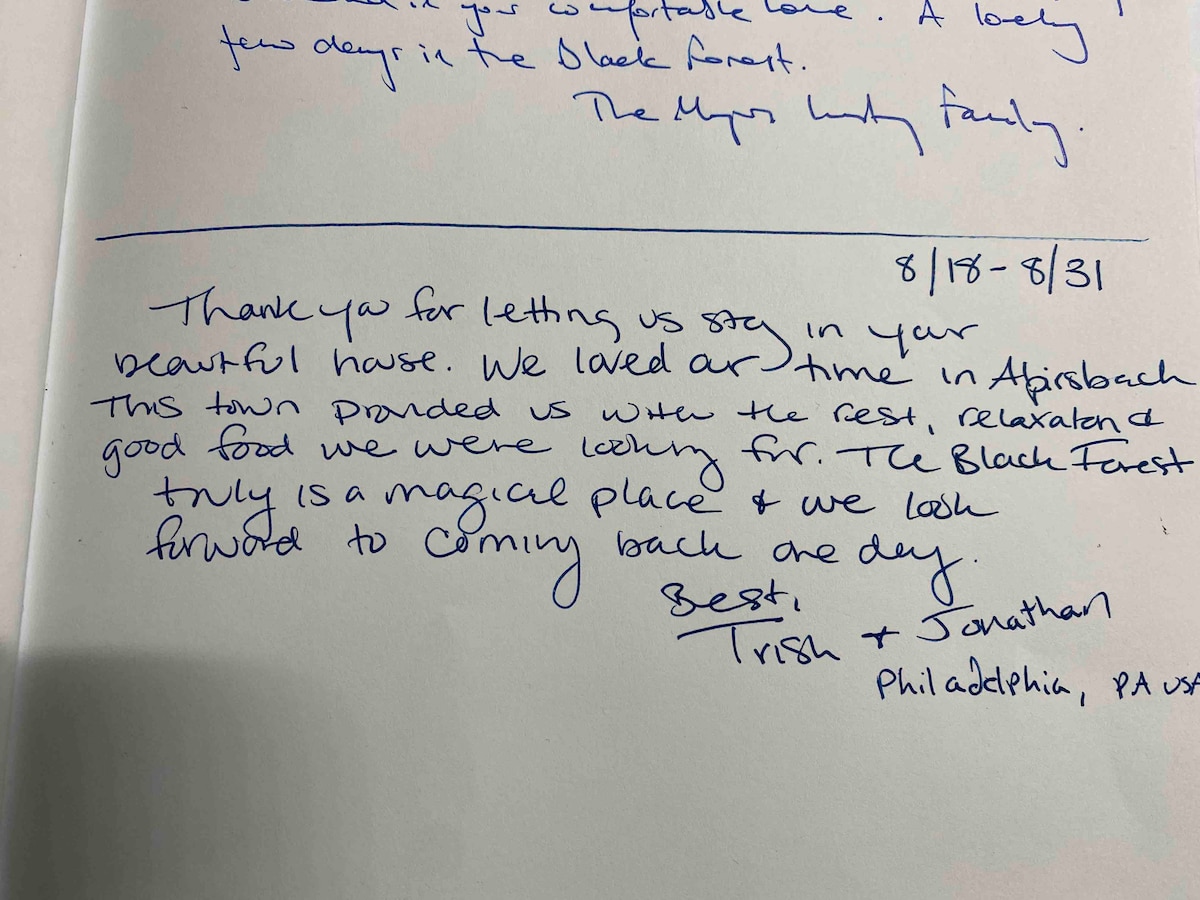 in your comfortable home. A lovely
few days in the Black Forest.
The Family.
8/18 - 8/31
Thank you for letting us stay in your
beautiful house. We loved our time in Alpirsbach
This town provided us with the rest, relaxation &
good food we were looking for. The Black Forest
truly is a magical place & we look
forward to coming back one day.
Best,
Trish + Jonathan
Philadelphia, PA USA